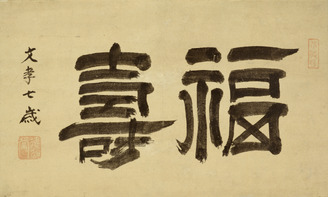 福壽
文孝七歲